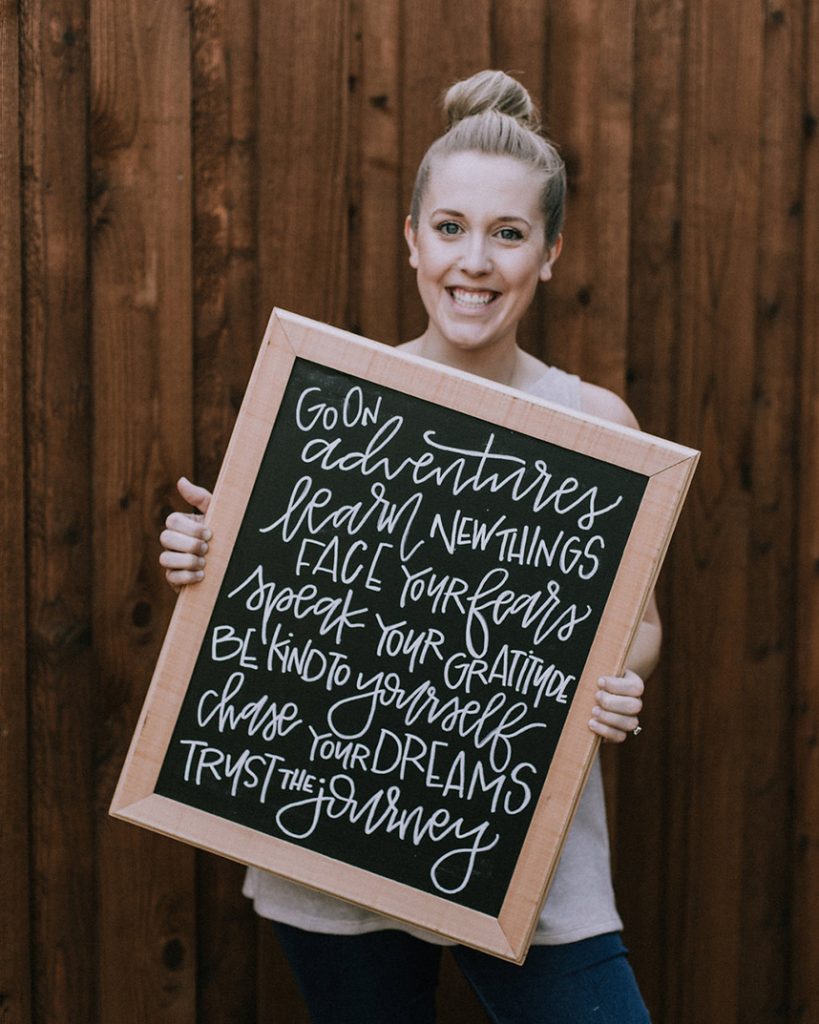 GO ON
adventures
learn NEW THINGS
FACE YOUR fears
speak YOUR GRATITUDE
BE KIND TO yourself
chase YOUR DREAMS
TRUST THE journey